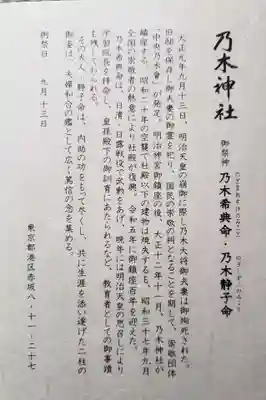 乃木神社
御祭神
乃木希典命・乃木静子命
大正元年九月十三日、明治天皇の崩御に際し乃木大将御夫妻は御殉死された。
旧邸を保存し御夫妻の御霊を祀り、国民の崇敬の的となることを期して、崇敬団体
「中央乃木會」が発足。明治神宮御鎮座の後、大正十二年十一月、乃木神社が
鎮座する。昭和二十年の空襲で社殿以下の建物は焼失するも、昭和三十七年九月
全国の崇敬者の熱意により社殿が復興。令和五年に御鎮座百年を迎えた。
乃木希典命は、日清、日露戦役で武勲をあげ、晩年には明治天皇の思召しにより
学習院長を拝命し、皇孫殿下の御訓育にあたられるなど、教育者としての御事蹟
も残しておられる。
その夫人、静子命は、内助の功をもって尽くし、共に生涯を添い遂げた二柱の
御姿は、夫婦和合の鑑として広く篤信の念を集める。
例祭日　九月十三日
東京都港区赤坂八-十一-二十七